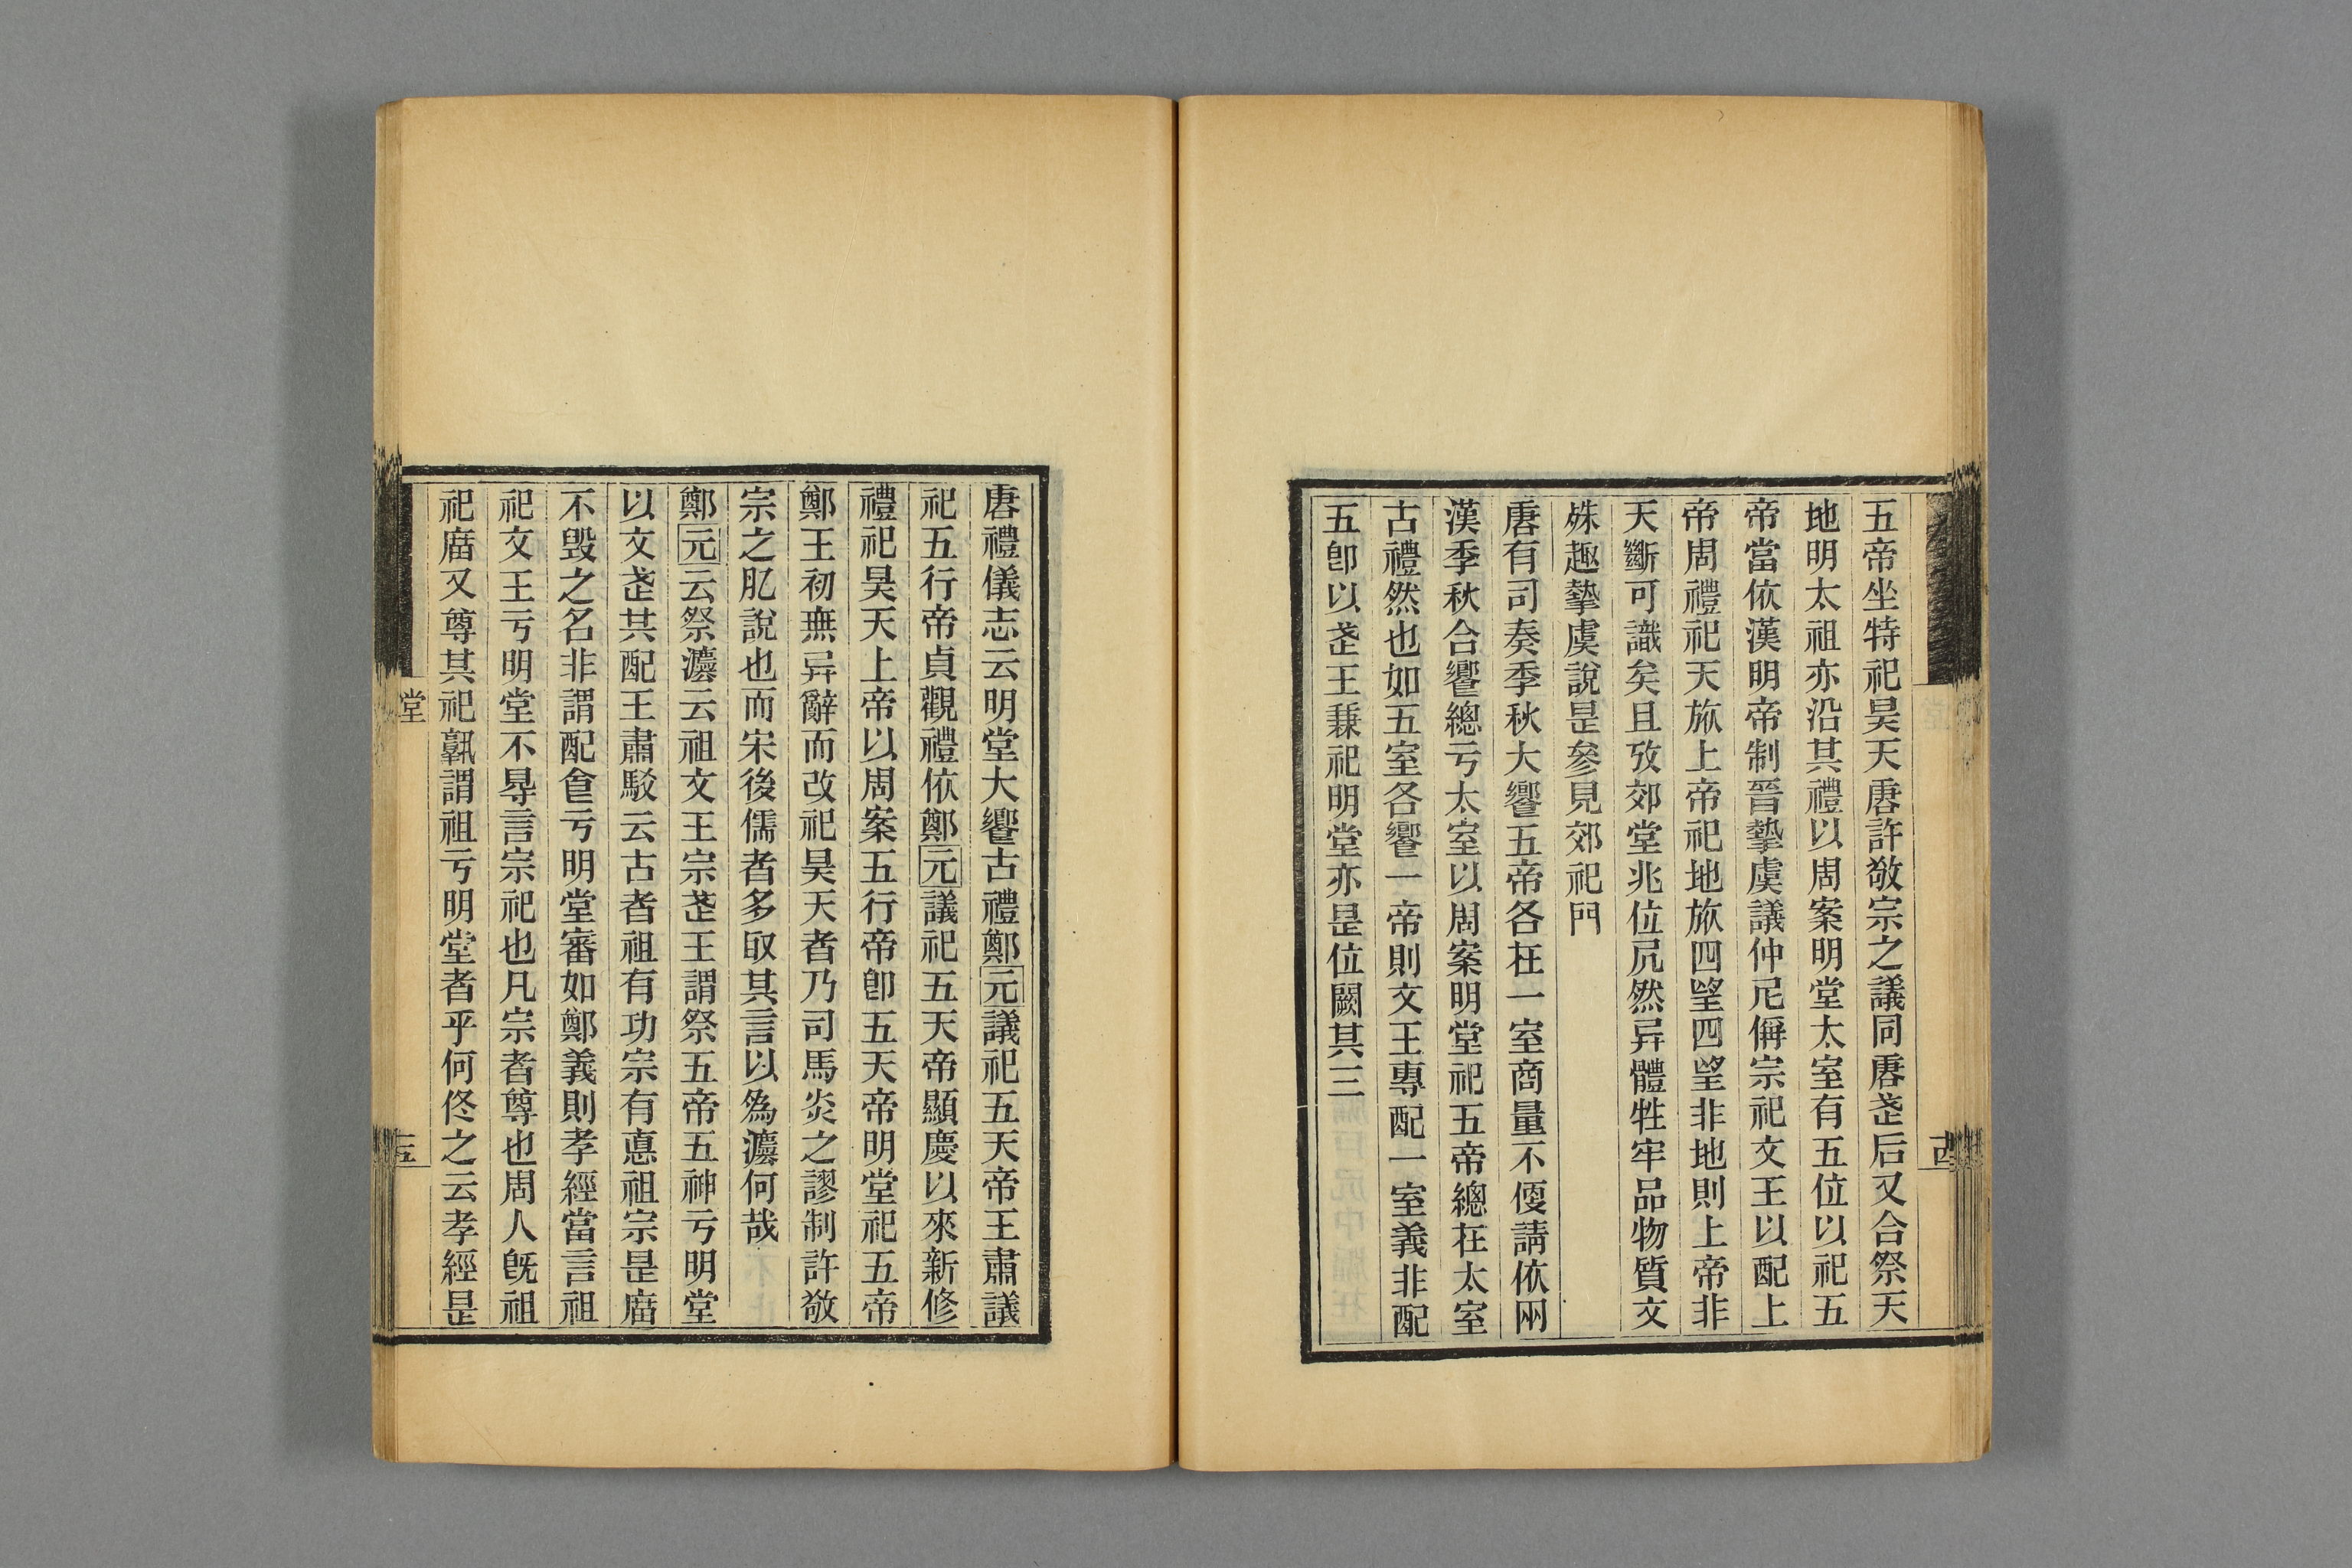 五帝坐特祀昊天唐許敬宗之議同唐𤯝后又合祭天
地明太祖亦沿其禮以周案明堂太室有五位以祀五
帝當依漢明帝制晉摯虞議仲尼偁宗祀文王以配上
帝周禮祀天旅上帝祀地旅四朢四朢非地則上帝非
天斷可識矣且攷郊堂兆位凥然异體牲牢品物質文
殊趣摯虞說昰參見郊祀門
唐有司奏季秋大饗五帝各在一室商量不㥠請依网
漢季秋合饗總亏太室以周案明堂祀五帝總在太室
古禮然也如五室各饗一帝則文王專配一室義非配
五卽以武王兼祀明堂亦昰位闕其三
唐禮儀志云明堂大饗古禮鄭元議祀五天帝王肅議
祀五行帝貞觀禮依鄭元議祀五天帝顯慶以來新修
禮祀昊天上帝以周案五行帝卽五天帝明堂祀五帝
鄭王初無异辭而改祀昊天者乃司馬炎之謬制許敬
宗之肊說也而宋後儒者多取其言以爲灋何哉
鄭元云祭灋云祖文王宗武王謂祭五帝五神亏明堂
以文武共配王肅駁云古者祖有功宗有悳祖宗昰廟
不毁之名非謂配食亏明堂審如鄭義則孝經當言祖
祀文王亏明堂不㝵言宗祀也凡宗者尊也周人旣祖
祀廟又尊其祀孰謂祖亏明堂者乎何佟之云孝經昰
堂